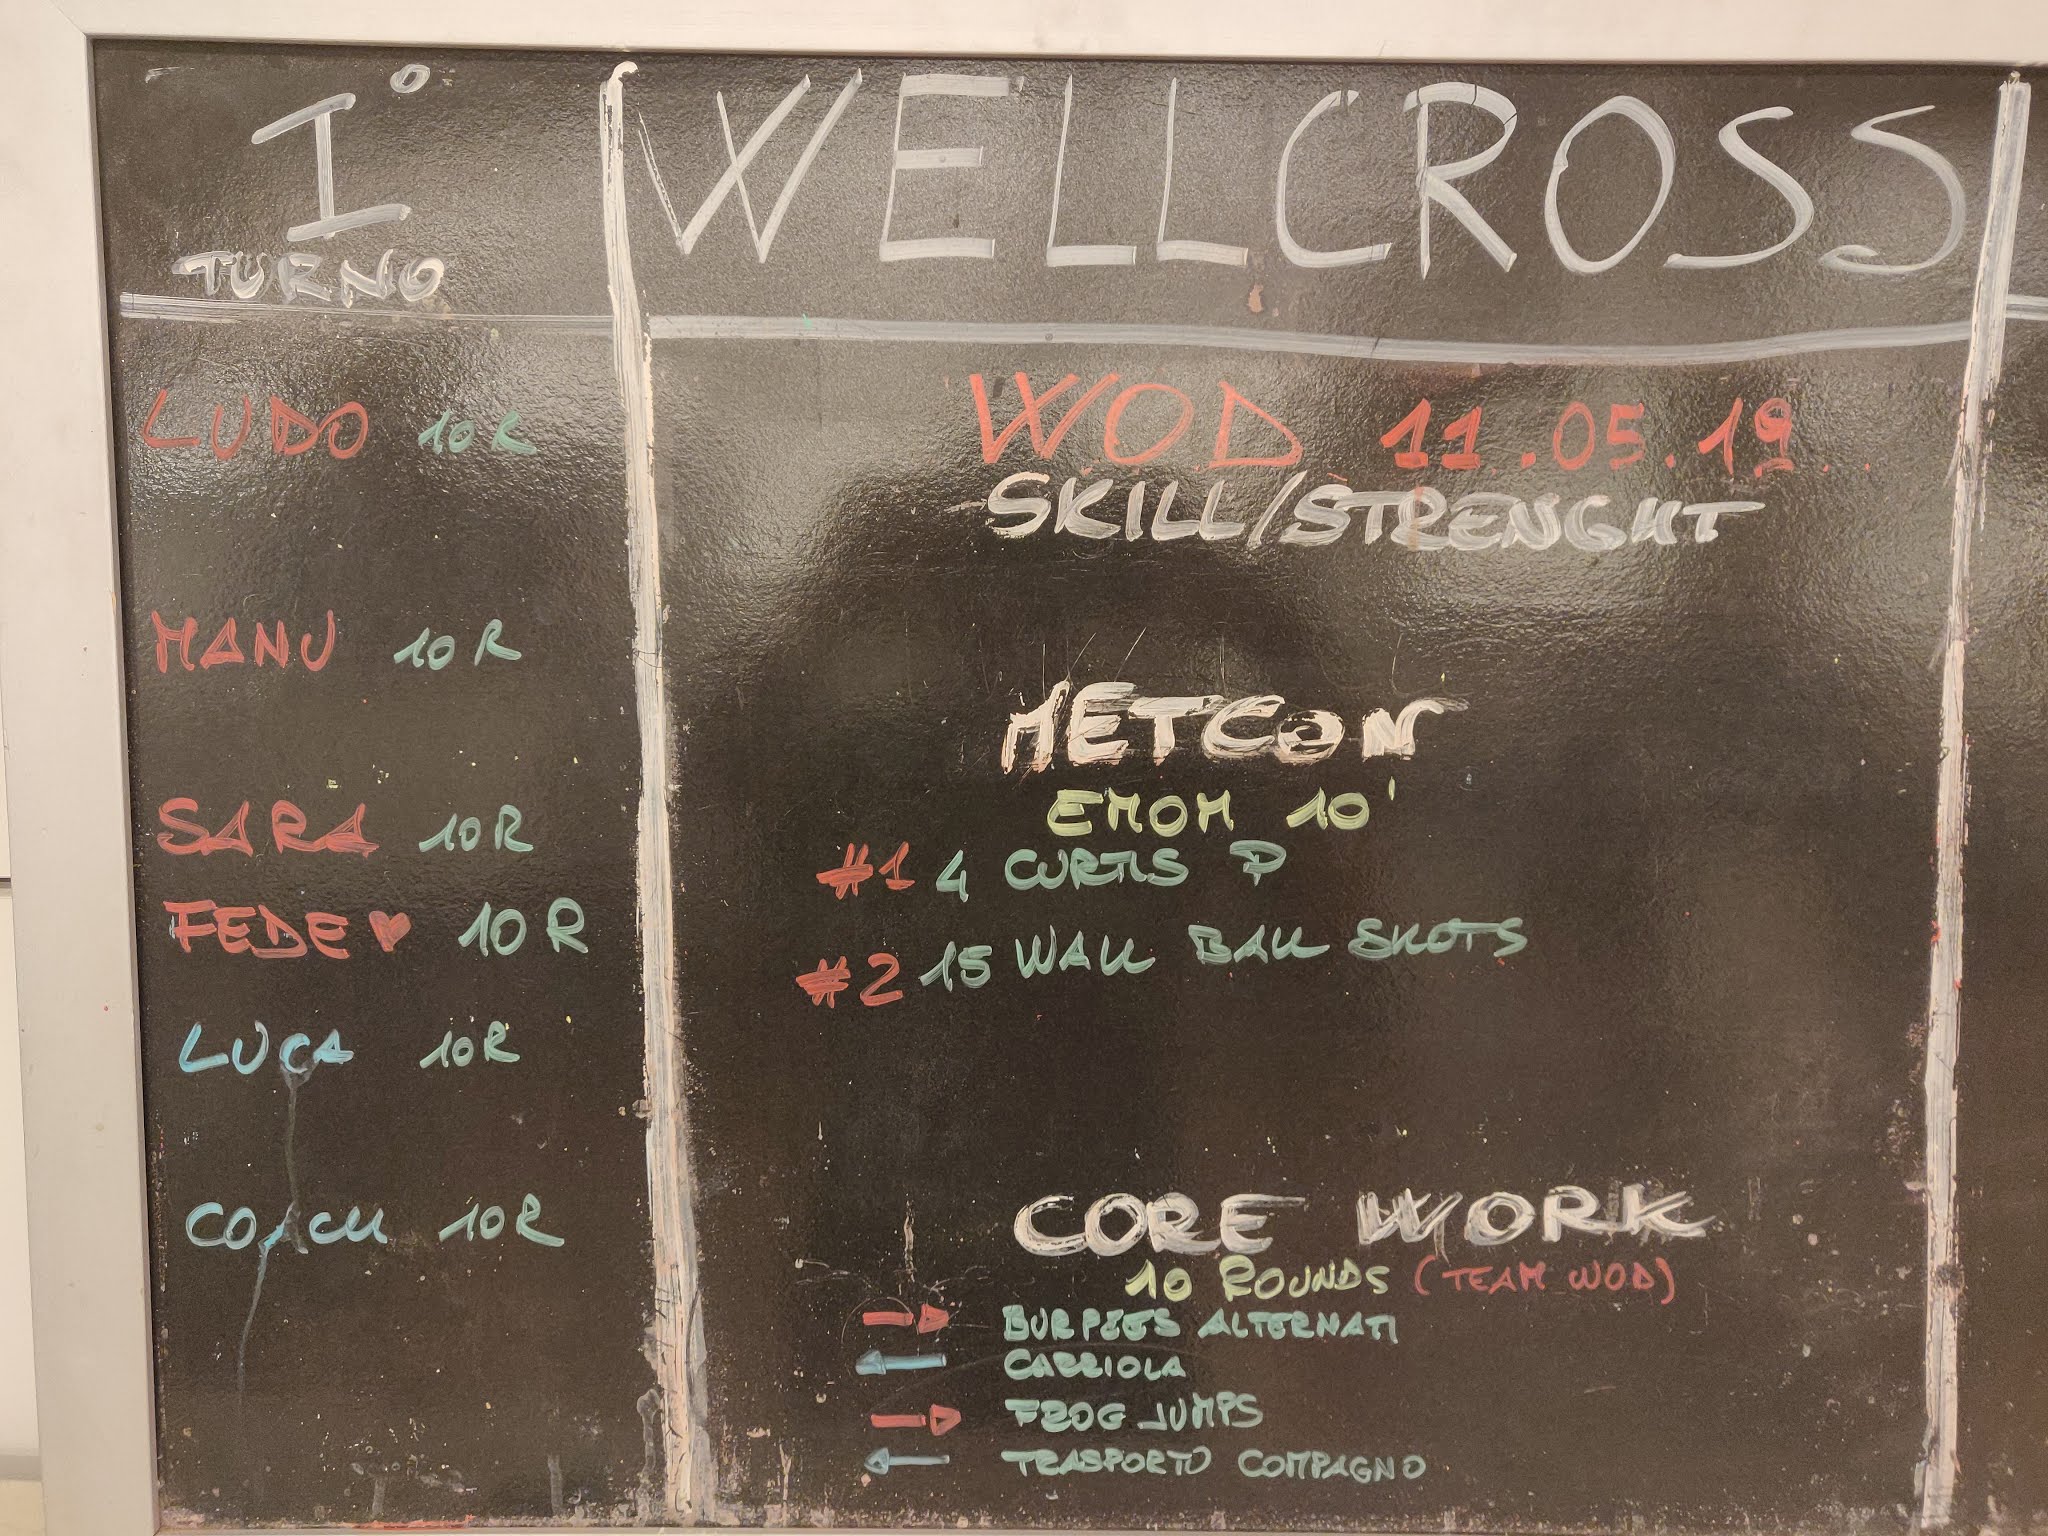 I°
TURNO
LUDO 10R
MANU 10R
SARA 10R
FEDE ♥ 10R
LUCA 10R
COACH 10R
WELLCROSS
W.O.D. 11.05.19
SKILL/STRENGHT
METCON
EMOM 10'
#1 4 CURTIS P
#2 15 WALL BALL SHOTS
CORE WORK
10 ROUNDS (TEAM WOD)
→ BURPEES ALTERNATI
← CARRIOLA
→ FROG JUMPS
← TRASPORTO COMPAGNO